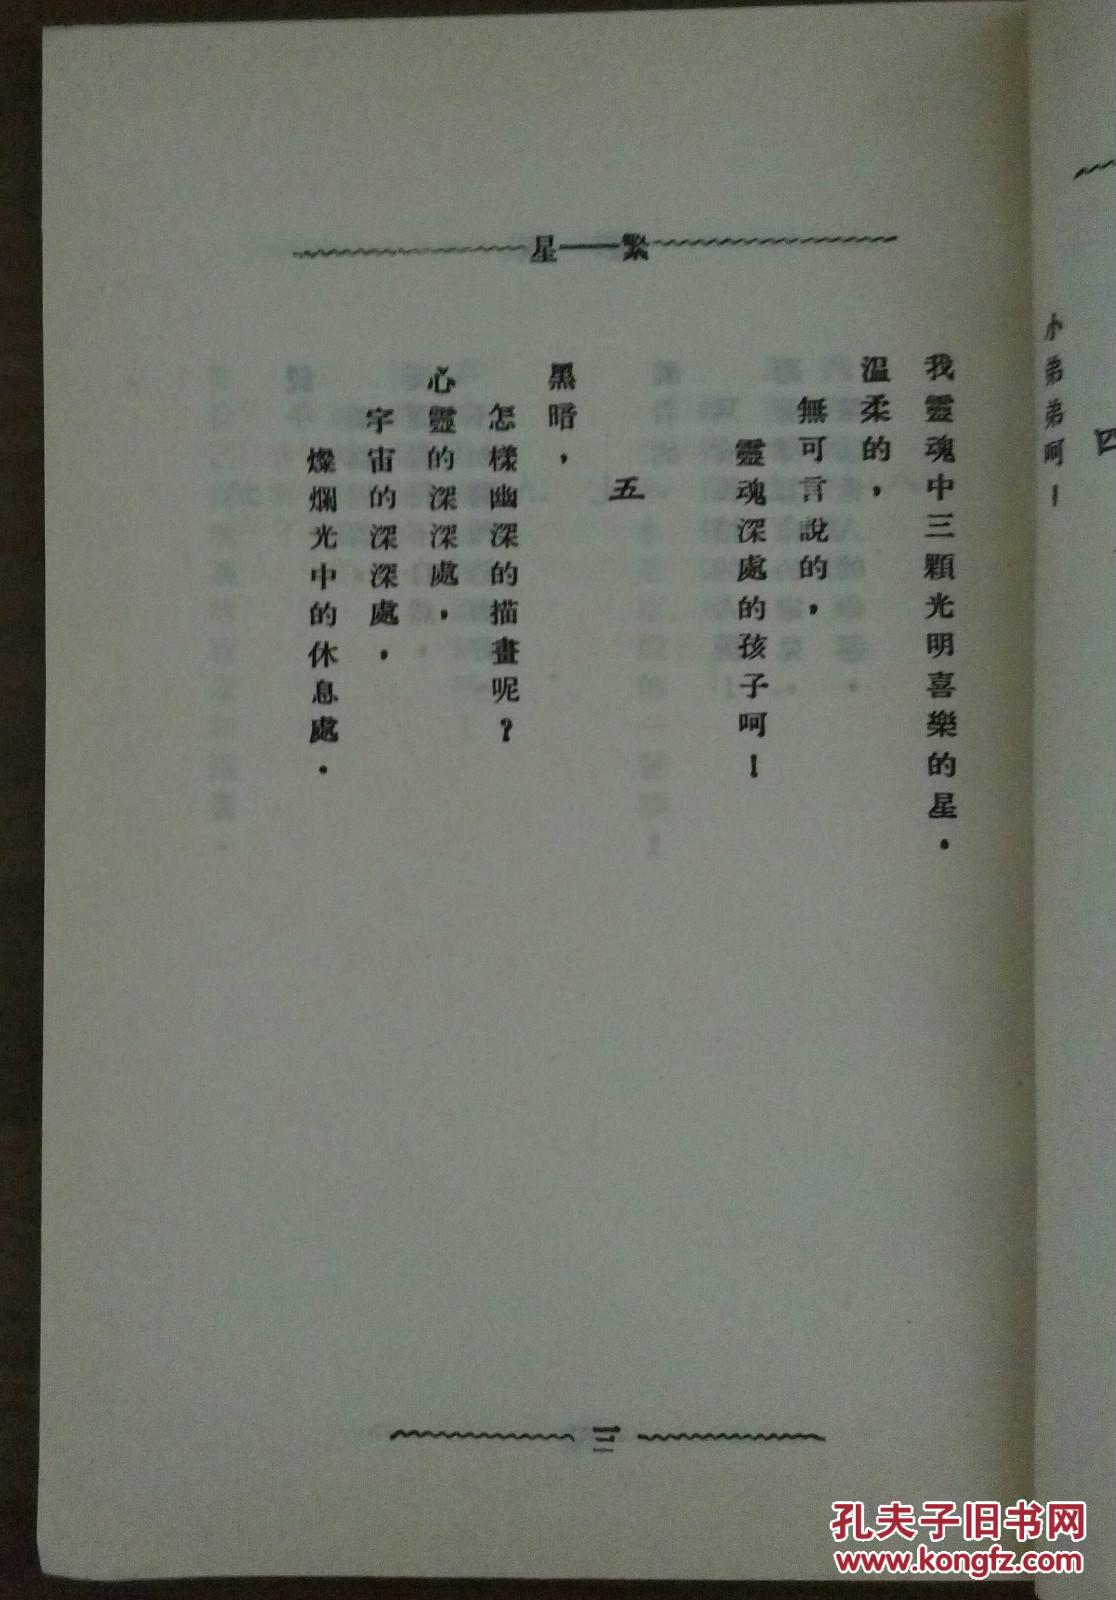 四
小弟弟呵！
繁——星
我靈魂中三顆光明喜樂的星．
溫柔的，
無可言說的，
靈魂深處的孩子呵！
五
黑暗，
怎樣幽深的描畫呢？
心靈的深深處，
宇宙的深深處，
燦爛光中的休息處．
三
孔夫子旧书网
www.kongfz.com